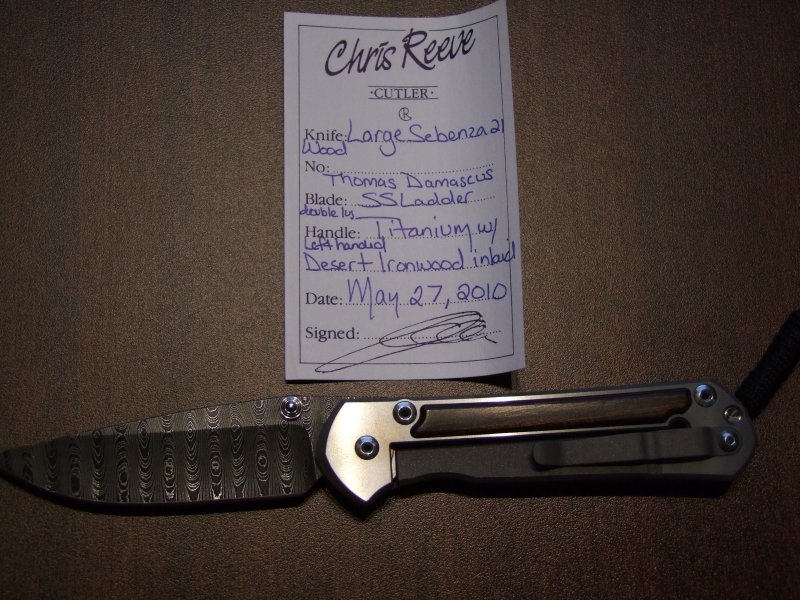 Chris Reeve
·CUTLER·
R
Knife: Large Sebenza 21
Wood
No:
Thomas Damascus
Blade: SS Ladder
double lug
Handle: Titanium w/
Left handed
Desert Ironwood inlaid
Date: May 27, 2010
Signed: